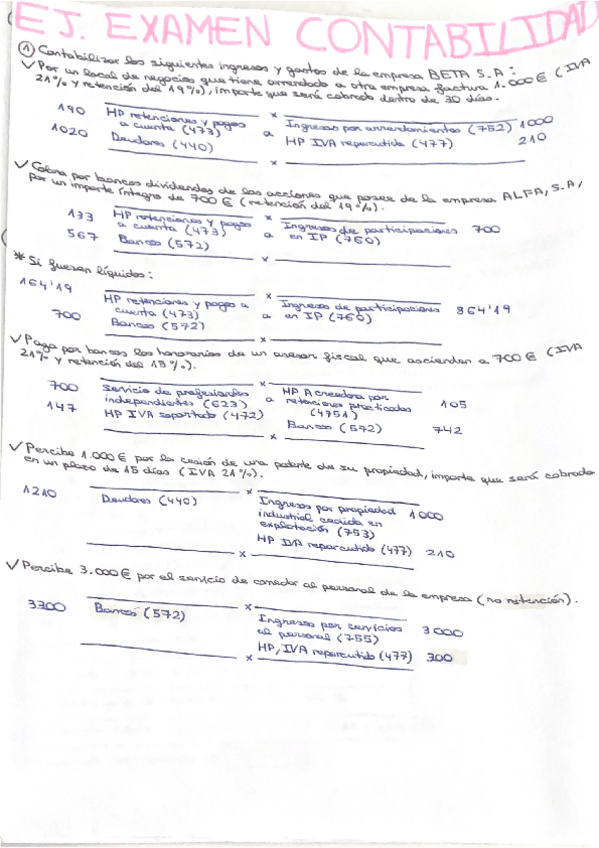 EJ. EXAMEN CONTABILIDAD
① Contabilizar los siguientes ingresos y gastos de la empresa BETA S.A:
✓ Por un local de negocios que tiene arrendado a otra empresa factura 1.000€ (IVA
21% y retención del 19%), importe que será cobrado dentro de 30 días.
190 HP retenciones y pagos x Ingresos por arrendamientos (752) 1000
a cuenta (473) a
1020 Deudores (440) HP IVA repercutido (477) 210
x
✓ Cobra por bancos dividendos de las acciones que posee de la empresa ALFA, S.A,
por un importe íntegro de 700 € (retención del 19%).
133 HP retenciones y pagos x Ingresos de participaciones 700
a cuenta (473) a en IP (760)
567 Bancos (572)
x
* Si fuesen líquidos:
164'19 HP retenciones y pagos a x Ingresos de participaciones 864'19
cuenta (473) a en IP (760)
700 Bancos (572)
x
✓ Paga por bancos los honorarios de un asesor fiscal que ascienden a 700€ (IVA
21% y retención del 15%).
700 Servicio de profesionales x HP Acreedora por 105
independientes (623) a retenciones practicadas
147 HP IVA soportado (472) (4751)
Bancos (572) 742
x
✓ Percibe 1.000€ por la cesión de una patente de su propiedad, importe que será cobrado
en un plazo de 15 días (IVA 21%).
1210 Deudores (440) x Ingresos por propiedad 1000
industrial cedida en
explotación (753)
HP IVA repercutido (477) 210
x
✓ Percibe 3.000€ por el servicio de comedor al personal de la empresa (no retención).
3300 Bancos (572) x Ingresos por servicios 3000
al personal (755)
HP, IVA repercutido (477) 300
x